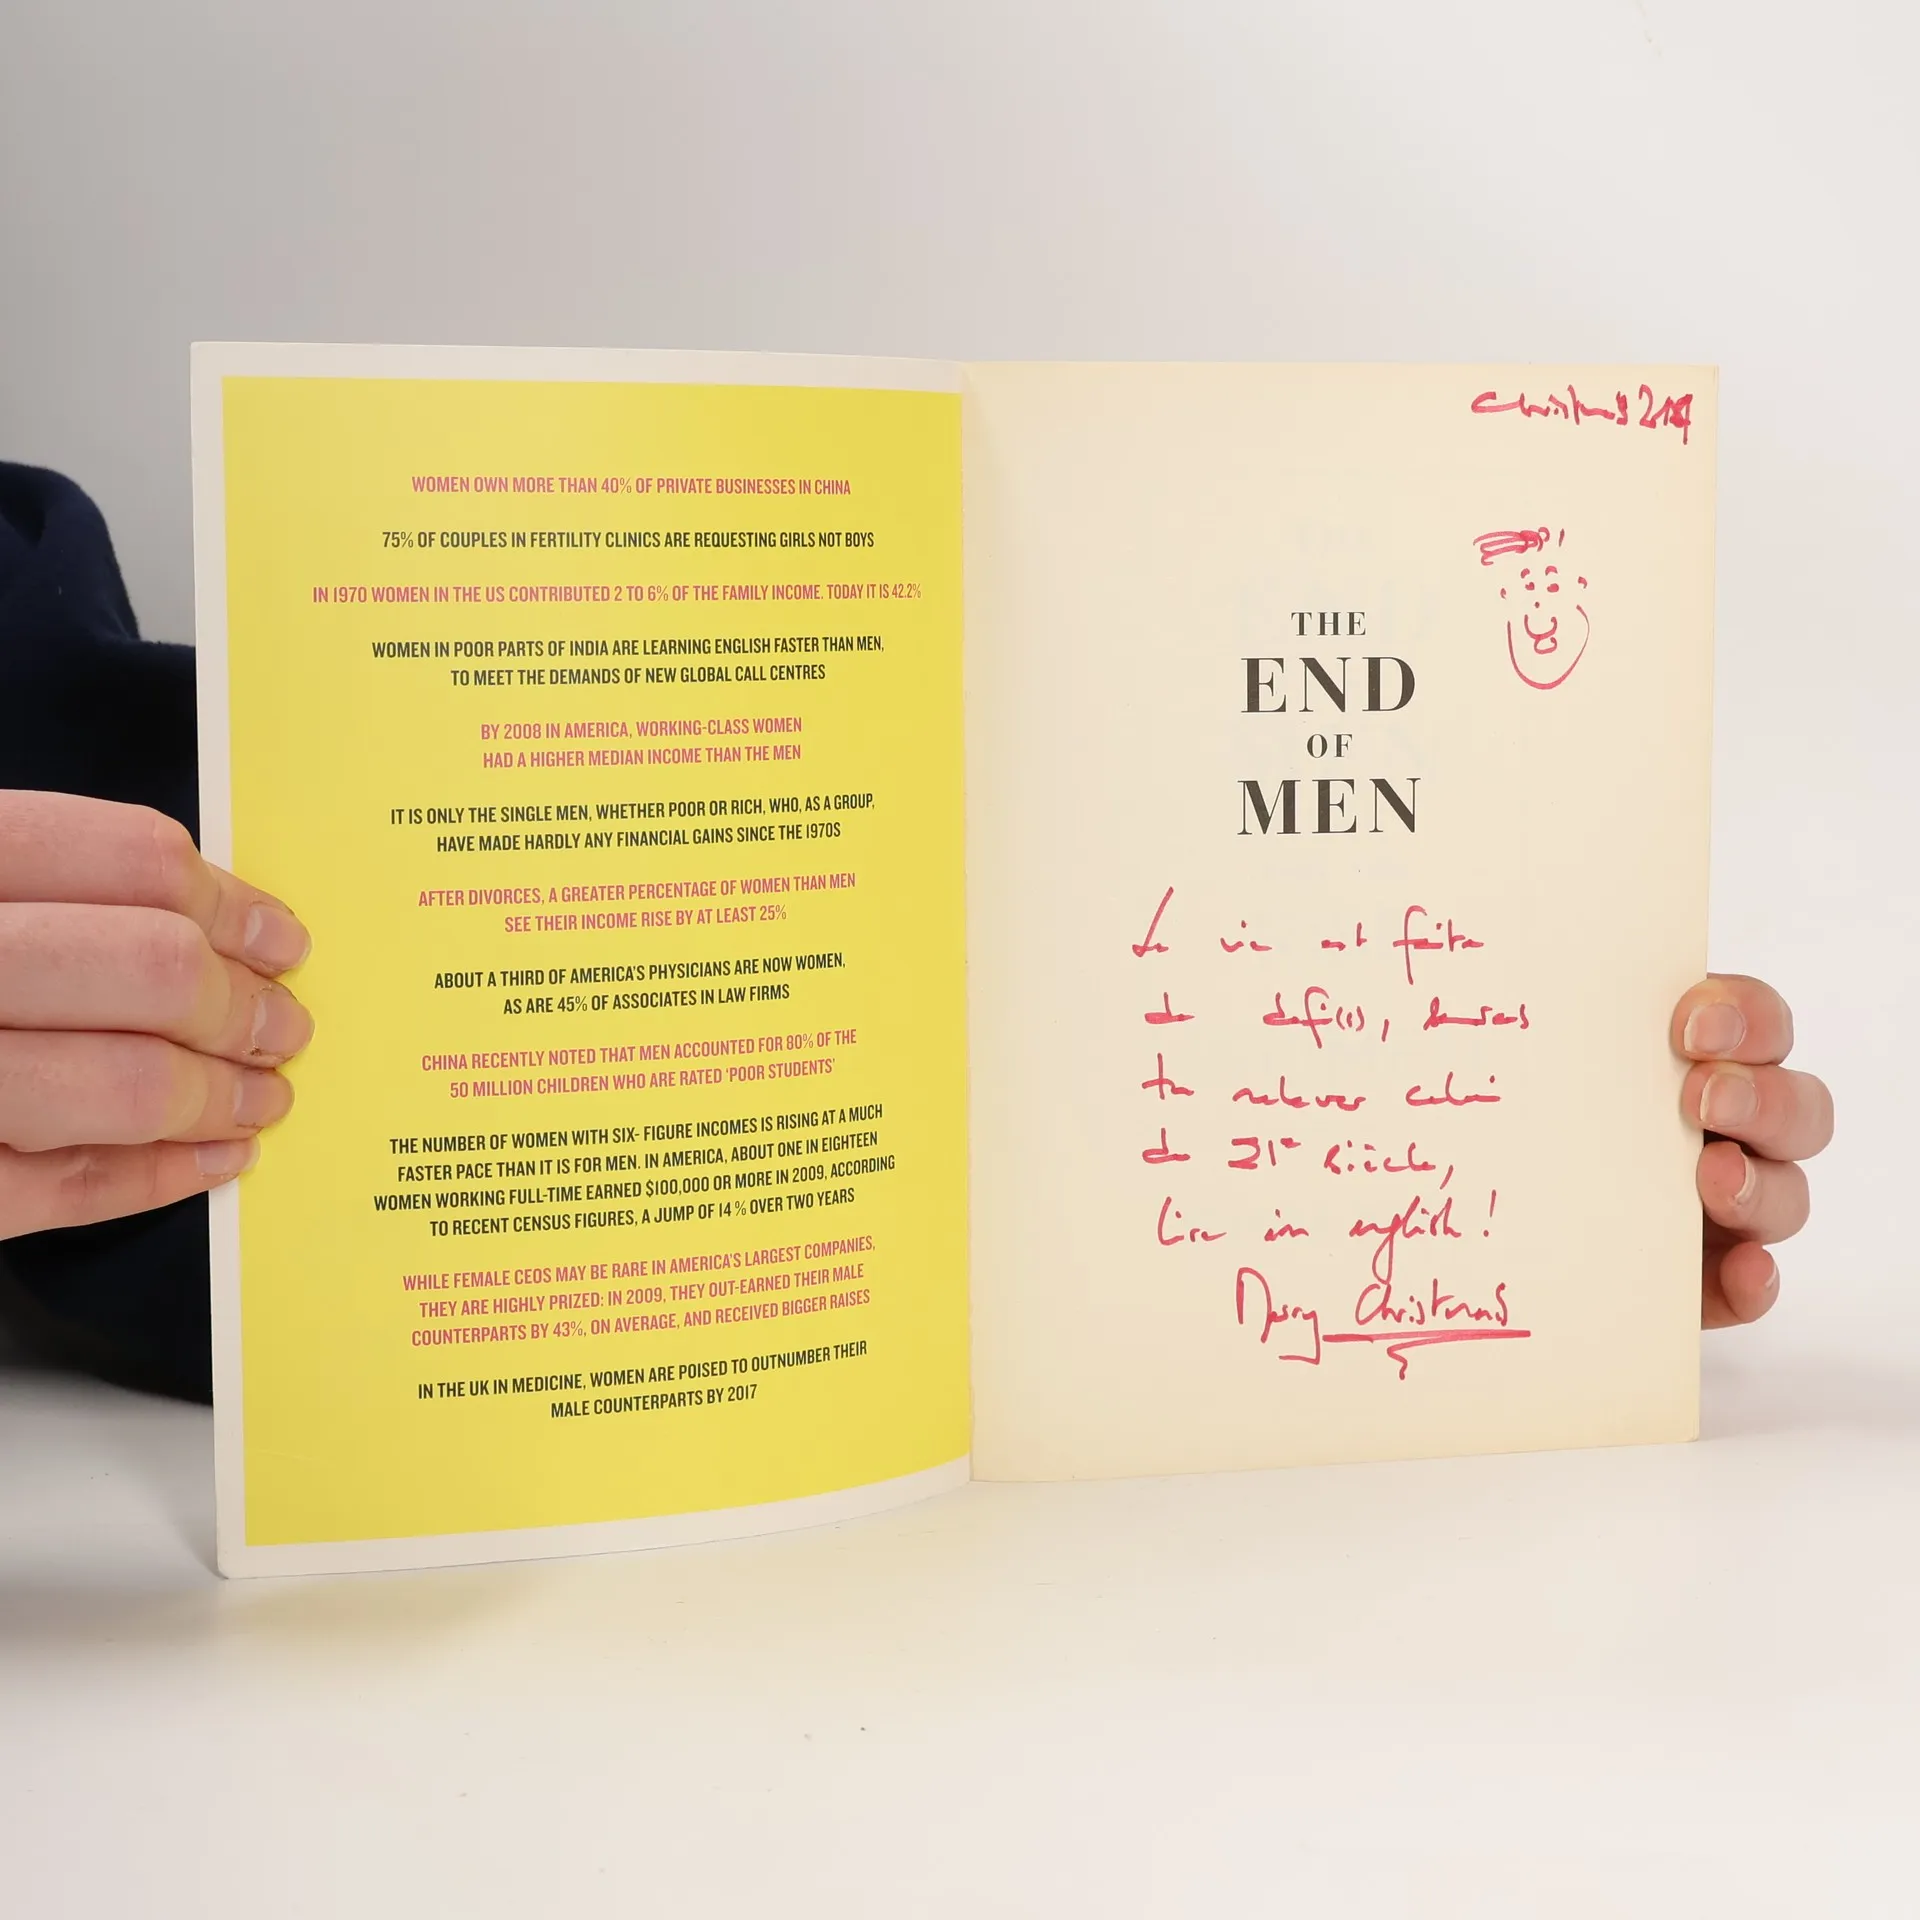 WOMEN OWN MORE THAN 40% OF PRIVATE BUSINESSES IN CHINA
75% OF COUPLES IN FERTILITY CLINICS ARE REQUESTING GIRLS NOT BOYS
IN 1970 WOMEN IN THE US CONTRIBUTED 2 TO 6% OF THE FAMILY INCOME. TODAY IT IS 42.2%
WOMEN IN POOR PARTS OF INDIA ARE LEARNING ENGLISH FASTER THAN MEN,
TO MEET THE DEMANDS OF NEW GLOBAL CALL CENTRES
BY 2008 IN AMERICA, WORKING-CLASS WOMEN
HAD A HIGHER MEDIAN INCOME THAN THE MEN
IT IS ONLY THE SINGLE MEN, WHETHER POOR OR RICH, WHO, AS A GROUP,
HAVE MADE HARDLY ANY FINANCIAL GAINS SINCE THE 1970S
AFTER DIVORCES, A GREATER PERCENTAGE OF WOMEN THAN MEN
SEE THEIR INCOME RISE BY AT LEAST 25%
ABOUT A THIRD OF AMERICA'S PHYSICIANS ARE NOW WOMEN,
AS ARE 45% OF ASSOCIATES IN LAW FIRMS
CHINA RECENTLY NOTED THAT MEN ACCOUNTED FOR 80% OF THE
50 MILLION CHILDREN WHO ARE RATED 'POOR STUDENTS'
THE NUMBER OF WOMEN WITH SIX- FIGURE INCOMES IS RISING AT A MUCH
FASTER PACE THAN IT IS FOR MEN. IN AMERICA, ABOUT ONE IN EIGHTEEN
WOMEN WORKING FULL-TIME EARNED $100,000 OR MORE IN 2009, ACCORDING
TO RECENT CENSUS FIGURES, A JUMP OF 14% OVER TWO YEARS
WHILE FEMALE CEOS MAY BE RARE IN AMERICA'S LARGEST COMPANIES,
THEY ARE HIGHLY PRIZED: IN 2009, THEY OUT-EARNED THEIR MALE
COUNTERPARTS BY 43%, ON AVERAGE, AND RECEIVED BIGGER RAISES
IN THE UK IN MEDICINE, WOMEN ARE POISED TO OUTNUMBER THEIR
MALE COUNTERPARTS BY 2017
Christmas
THE
END
OF
MEN
La vie est faite
de défi(s),
relever celui
de 21e siècle,
lire in english!
Merry Christmas